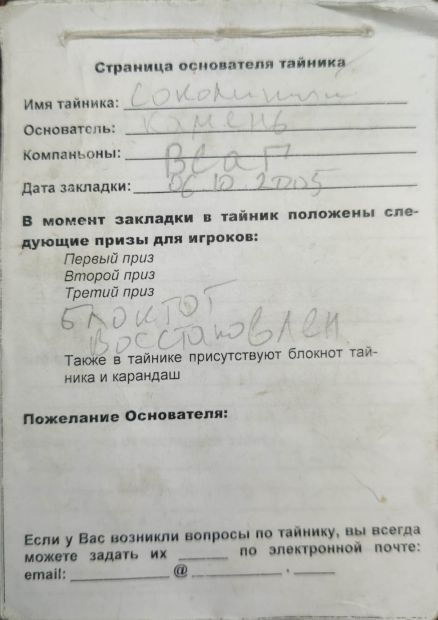 Страница основателя тайника
Имя тайника: Соколиный
Основатель: камень
Компаньоны: Всап
Дата закладки: 06.10.2005
В момент закладки в тайник положены сле-
дующие призы для игроков:
Первый приз
Второй приз
Третий приз
БЛОКТОТ
ВОССТАНОВЛЕН
Также в тайнике присутствуют блокнот тай-
ника и карандаш
Пожелание Основателя:
Если у Вас возникли вопросы по тайнику, вы всегда
можете задать их ______ по электронной почте:
email: ____________ @ ___________ . _____